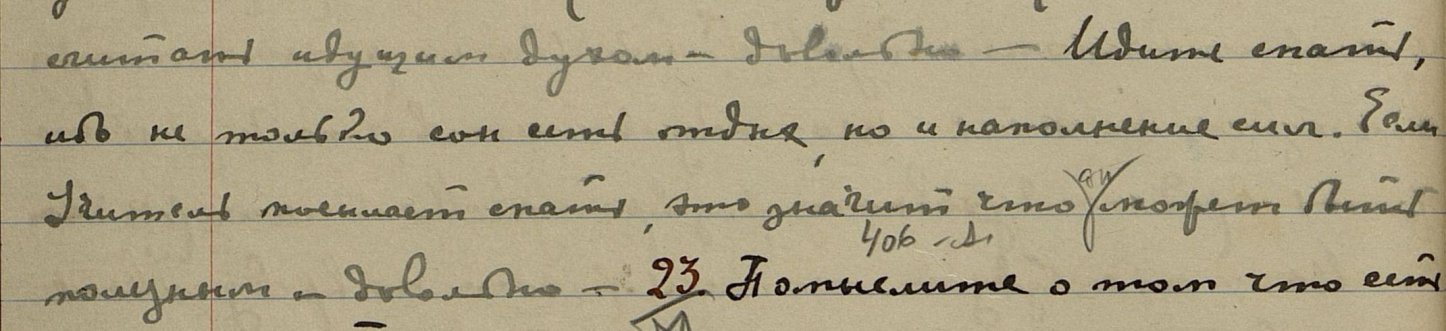 считать идущим духом – довольно – Идите спать,
ибо не только сон есть отдых, но и наполнение сил. Если
Учитель посылает спать, это значит что он может быть
406
полезным – довольно – 23. Помыслите о том что есть